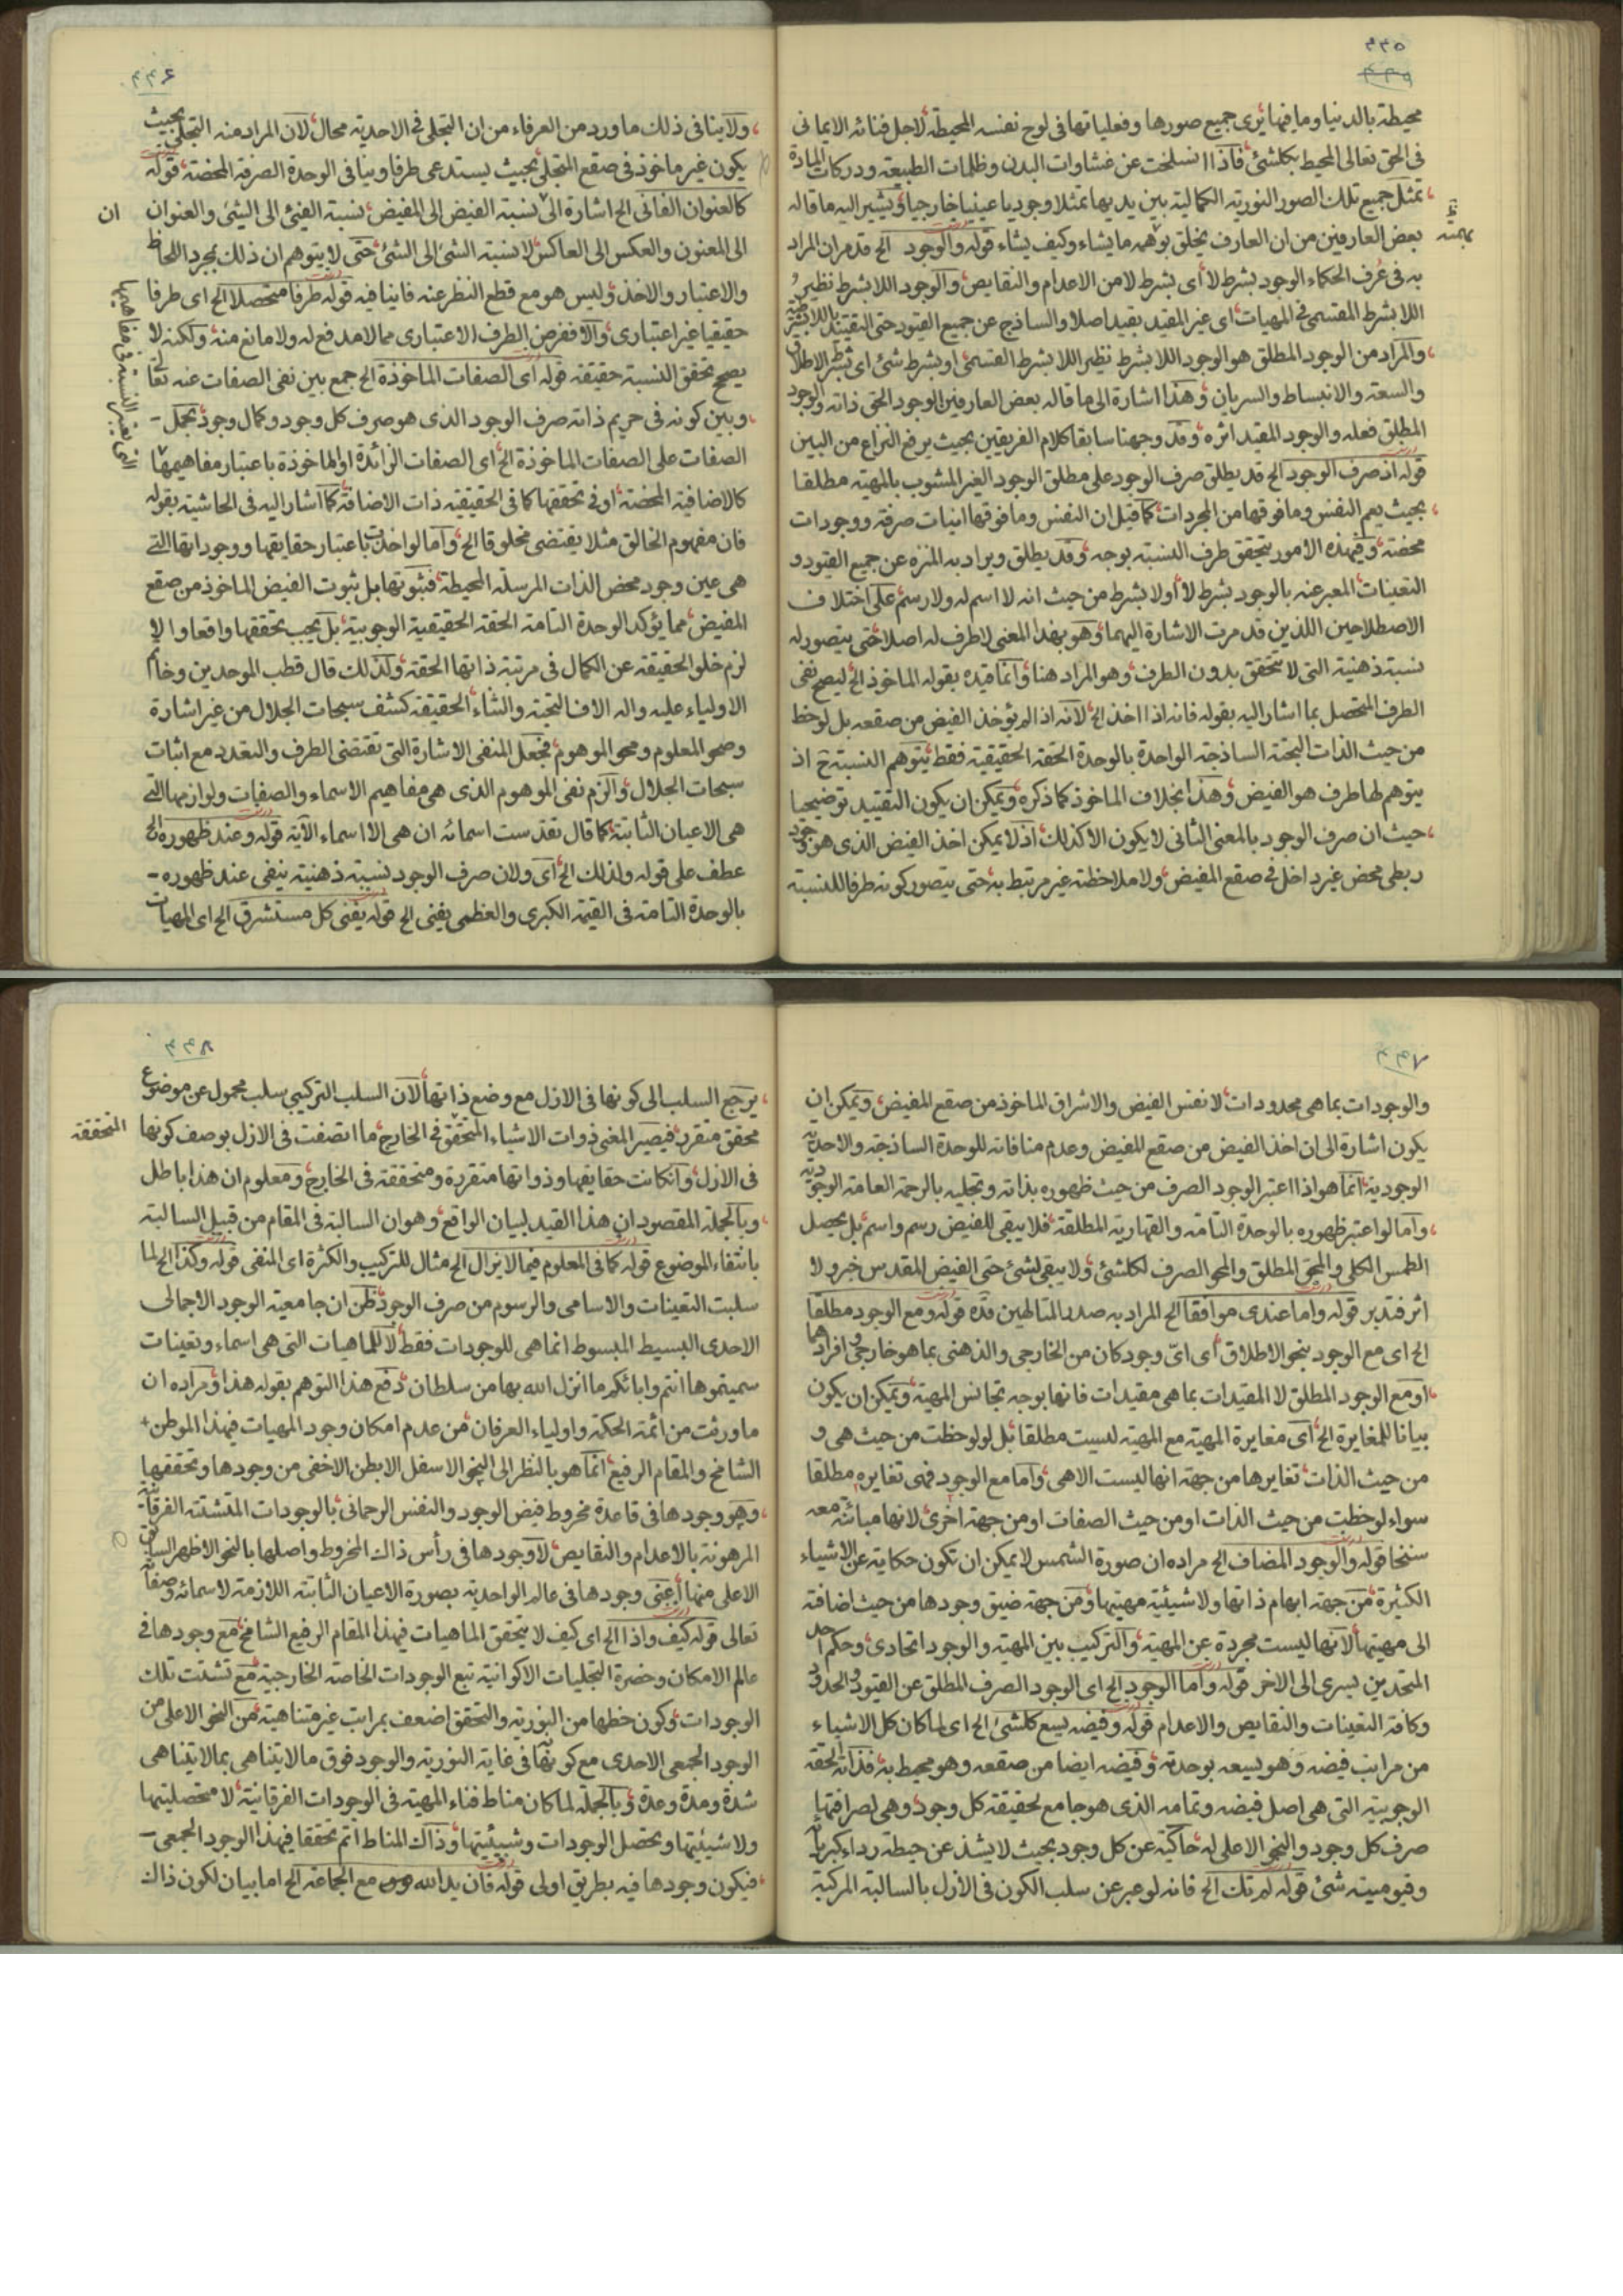 ۳۳۵
محیطة بالدنیا وما فیها یری جمیع صورها وفعلیاتها فی لوح نفسه المحیطة لاجل فنائه الایمانی
فی الحق تعالی المحیط بکلشئ فاذا انسلخت عن غشاوات البدن وظلمات الطبیعة ودرکات المادة
تمثل جمیع تلک الصور النوریة الکمالیة بین یدیها تمثلا وجودیا عینیا خارجیا ویشیر الیه ما قاله
بعض العارفین من ان العارف یخلق بوهمه ما یشاء وکیف یشاء قوله والوجود الخ قد مر ان المراد
به فی عرف الحکماء الوجود بشرط لا ای بشرط لا من الاعدام والنقایص والوجود اللابشرط نظیر
اللابشرط المقسمی فی المهیات ای غیر المقید بقید اصلا والساذج عن جمیع القیود حتی التقیید باللابشرطیة
والمراد من الوجود المطلق هو الوجود اللابشرط نظیر اللابشرط القسمی او بشرط شئ ای بشرط الاطلاق
والسعة والانبساط والسریان وهذا اشارة الی ما قاله بعض العارفین الوجود الحق ذاته والوجود
المطلق فعله والوجود المقید اثره وقد وجهنا سابقا کلام الفریقین بحیث یرفع النزاع من البین
قوله اذ صرف الوجود الخ قد یطلق صرف الوجود علی مطلق الوجود الغیر المشوب بالمهیة مطلقا
بحیث یعم النفس وما فوقها من المجردات کما قیل ان النفس وما فوقها انیات صرفة ووجودات
محضة وفی هذه الامور یتحقق طرف النسبة بوجه وقد یطلق ویراد به المنزه عن جمیع القیود و
التعینات المعبر عنه بالوجود بشرط لا او لا بشرط من حیث انه لا اسم له ولا رسم علی اختلاف
الاصطلاحین اللذین قد مرت الاشارة الیهما وهو بهذا المعنی لا طرف له اصلا حتی یتصور له
نسبة ذهنیة التی لا تتحقق بدون الطرف وهو المراد هنا وانما قیده بقوله الماخوذ الخ لیصح نفی
الطرف المتحصل بما اشار الیه بقوله فانه اذا اخذ الخ لانه اذا لم یؤخذ الفیض من صقعه بل لوحظ
من حیث الذات البحتة الساذجة الواحدة بالوحدة الحقة الحقیقیة فقط یتوهم النسبة ح اذ
یتوهم لها طرف هو الفیض وهذا بخلاف الماخوذ کما ذکره ویمکن ان یکون التقیید توضیحیا
حیث ان صرف الوجود بالمعنی الثانی لا یکون الا کذلک اذ لا یمکن اخذ الفیض الذی هو وجود
ربطی محض غیر داخل فی صقع المفیض ولا ملاحظته غیر مرتبط به حتی یتصور کونه طرفا للنسبة
۳۳۶
ولا ینافی ذلک ما ورد من العرفاء من ان التجلی فی الاحدیة محال لان المراد منه التجلی بحیث
یکون غیر ماخوذ فی صقع المتجلی بحیث یستدعی طرفا وینافی الوحدة الصرفة المحضة قوله
کالعنوان الفانی الخ اشارة الی ان نسبة الفیض الی المفیض نسبة الفیئ الی الشئ والعنوان
الی المعنون والعکس الی العاکس لا نسبة الشئ الی الشئ حتی لا یتوهم ان ذلک بمجرد اللحاظ
والاعتبار والاخذ ولیس هو مع قطع النظر عنه فانیا فیه قوله طرفا متحصلا الخ ای طرفا
حقیقیا غیر اعتباری والا ففرض الطرف الاعتباری مما لا مدفع له ولا مانع منه ولکنه لا
یصح تحقق النسبة حقیقة قوله ای الصفات الماخوذة الخ جمع بین نفی الصفات عنه تعالی
وبین کونه فی حریم ذاته صرف الوجود الذی هو صرف کل وجود وکمال وجود بحمل
الصفات علی الصفات الماخوذة الخ ای الصفات الزائدة او الماخوذة باعتبار مفاهیمها
کالاضافیة المحضة او فی تحققها کما فی الحقیقیة ذات الاضافة کما اشار الیه فی الحاشیة بقوله
فان مفهوم الخالق مثلا یقتضی مخلوقا الخ واما لو اخذت باعتبار حقایقها ووجوداتها التی
هی عین وجود محض الذات المرسلة المحیطة فثبوتها بل ثبوت الفیض الماخوذ من صقع
المفیض مما یؤکد الوحدة التامة الحقة الحقیقیة الوجوبیة بل یجب تحققها واقعا والا
لزم خلو الحقیقة عن الکمال فی مرتبة ذاتها الحقة ولذلک قال قطب الموحدین وخاتم
الاولیاء علیه واله الاف التحیة والثناء الحقیقة کشف سبحات الجلال من غیر اشارة
وصحو المعلوم ومحو الموهوم فجعل المنفی الاشارة التی تقتضی الطرف والتعدد مع اثبات
سبحات الجلال والزم نفی الموهوم الذی هی مفاهیم الاسماء والصفات ولوازمها التی
هی الاعیان الثابتة کما قال تقدست اسمائه ان هی الا اسماء الآیة قوله وعند ظهوره الخ
عطف علی قوله ولذلک الخ ای ولان صرف الوجود نسبته ذهنیة ینفی عند ظهوره
بالوحدة التامة فی القیمة الکبری والعظمی یفنی الخ قوله یفنی کل مستشرق الخ ای المهیات
۳۳۷
والوجودات بما هی محدودات لا نفس الفیض والاشراق الماخوذ من صقع المفیض ویمکن ان
یکون اشارة الی ان اخذ الفیض من صقع المفیض وعدم منافاته للوحدة الساذجة والاحدیة
الوجودیة انما هو اذا اعتبر الوجود الصرف من حیث ظهوره بذاته وتجلیه بالرحمة العامة الوجودیة
واما لو اعتبر ظهوره بالوحدة التامة والقهاریة المطلقة فلا یبقی للفیض رسم واسم بل یحصل
الطمس الکلی والمحق المطلق والمحو الصرف لکلشئ ولا یبقی لشئ حتی الفیض المقدس خبر ولا
اثر فتدبر قوله واما عندی موافقا الخ المراد به صدر المتالهین قده قوله ومع الوجود مطلقا
الخ ای مع الوجود بنحو الاطلاق ای ای وجود کان من الخارجی والذهنی بما هو خارجی وافرادهما
او مع الوجود المطلق لا المقیدات بما هی مقیدات فانها بوجه تجانس المهیة ویمکن ان یکون
بیانا للمغایرة الخ ای مغایرة المهیة مع المهیة لیست مطلقا بل لو لوحظت من حیث هی و
من حیث الذات تغایرها من جهة انها لیست الا هی واما مع الوجود فهی تغایره مطلقا
سواء لوحظت من حیث الذات او من حیث الصفات او من جهة اخری لانها مباینة معه
سنخا قوله والوجود المضاف الخ مراده ان صورة الشمس لا یمکن ان تکون حکایة عن الاشیاء
الکثیرة من جهة ابهام ذاتها ولا شیئیة مهیتها ومن جهة ضیق وجودها من حیث اضافة
الی مهیتها لانها لیست مجردة عن المهیة والترکیب بین المهیة والوجود اتحادی وحکم احد
المتحدین یسری الی الاخر قوله واما الوجود الخ ای الوجود الصرف المطلق عن القیود والحدود
وکافة التعینات والنقایص والاعدام قوله وفیضه یسع کلشئ الخ ای لما کان کل الاشیاء
من مراتب فیضه وهو یسعه بوحدته وفیضه ایضا من صقعه وهو محیط به فذاته الحقة
الوجوبیة التی هی اصل فیضه وتمامه الذی هو جامع لحقیقة کل وجود وهی لصرافتها
صرف کل وجود والنحو الاعلی له حاکیة عن کل وجود بحیث لا یشذ عن حیطة رداء کبریائه
وقیومیته شئ قوله لم تک الخ فانه لو عبر عن سلب الکون فی الازل بالسالبة المرکبة
۳۳۸
یرجع السلب الی کونها فی الازل مع وضع ذاتها لان السلب الترکیبی سلب محمول عن موضوع
محقق متقرر فیصیر المعنی ذوات الاشیاء المتحققة فی الخارج ما اتصفت فی الازل بوصف کونها
فی الازل وان کانت حقایقها وذواتها متقررة ومتحققة فی الخارج ومعلوم ان هذا باطل
وبالجملة المقصود ان هذا القید لبیان الواقع وهو ان السالبة فی المقام من قبیل السالبة
بانتفاء الموضوع قوله کما فی المعلوم فیما لایزال الخ مثال للترکیب والکثرة ای المنفی قوله وکذا الخ لما
سلبت التعینات والاسامی والرسوم من صرف الوجود ظن ان جامعیة الوجود الاجمالی
الاحدی البسیط المبسوط انما هی للوجودات فقط لا للماهیات التی هی اسماء وتعینات
سمیتموها انتم وابائکم ما انزل الله بها من سلطان دفع هذا التوهم بقوله هذا ومراده ان
ما ورث من ائمة الحکمة واولیاء العرفان من عدم امکان وجود المهیات فی هذا الموطن
الشامخ والمقام الرفیع انما هو بالنظر الی النحو الاسفل الابطن الاخفی من وجودها وتحققها
وهو وجودها فی قاعدة مخروط فیض الوجود والنفس الرحمانی بالوجودات المتشتتة الفرقانیة
المرهونة بالاعدام والنقایص لا وجودها فی رأس ذاک المخروط واصلها بالنحو الاظهر السابق
الاعلی منها اعنی وجودها فی عالم الواحدیة بصورة الاعیان الثابتة اللازمة لاسمائه وصفاته
تعالی قوله کیف واذا الخ ای کیف لا یتحقق الماهیات فی هذا المقام الرفیع الشامخ مع وجودها فی
عالم الامکان وحضرة التجلیات الاکوانیة تبع الوجودات الخاصة الخارجیة مع تشتت تلک
الوجودات وکون حظها من النوریة والتحقق اضعف بمراتب غیر متناهیة من النحو الاعلی من
الوجود الجمعی الاحدی مع کونها فی غایة النوریة والوجود فوق ما لا یتناهی بما لا یتناهی
شدة ومدة وعدة وبالجملة لما کان مناط فناء المهیة فی الوجودات الفرقانیة لا متحصلیتها
ولا شیئیتها وتحصل الوجودات وشیئیتها وذاک المناط اتم تحققا فی هذا الوجود الجمعی
فیکون وجودها فیه بطریق اولی قوله فان ید الله مع الجماعة الخ اما بیان لکون ذاک